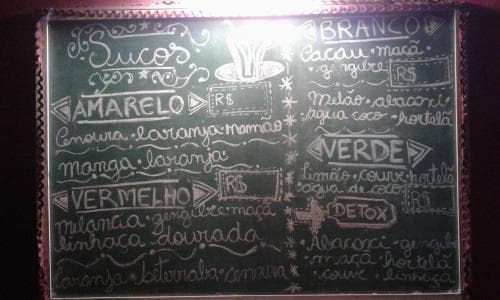 Sucos
AMARELO
R$
Cenoura • laranja • mamão
manga • laranja
VERMELHO
R$
melancia • gengibre • maçã
linhaça dourada
laranja • beterraba • cenoura
BRANCO
Cacau • maçã
• gengibre
R$
Melão • abacaxi •
água coco • hortelã
VERDE
limão • couve • hortelã
água de coco
R$
DETOX
• Abacaxi • gengibre
maçã • hortelã
couve • linhaça